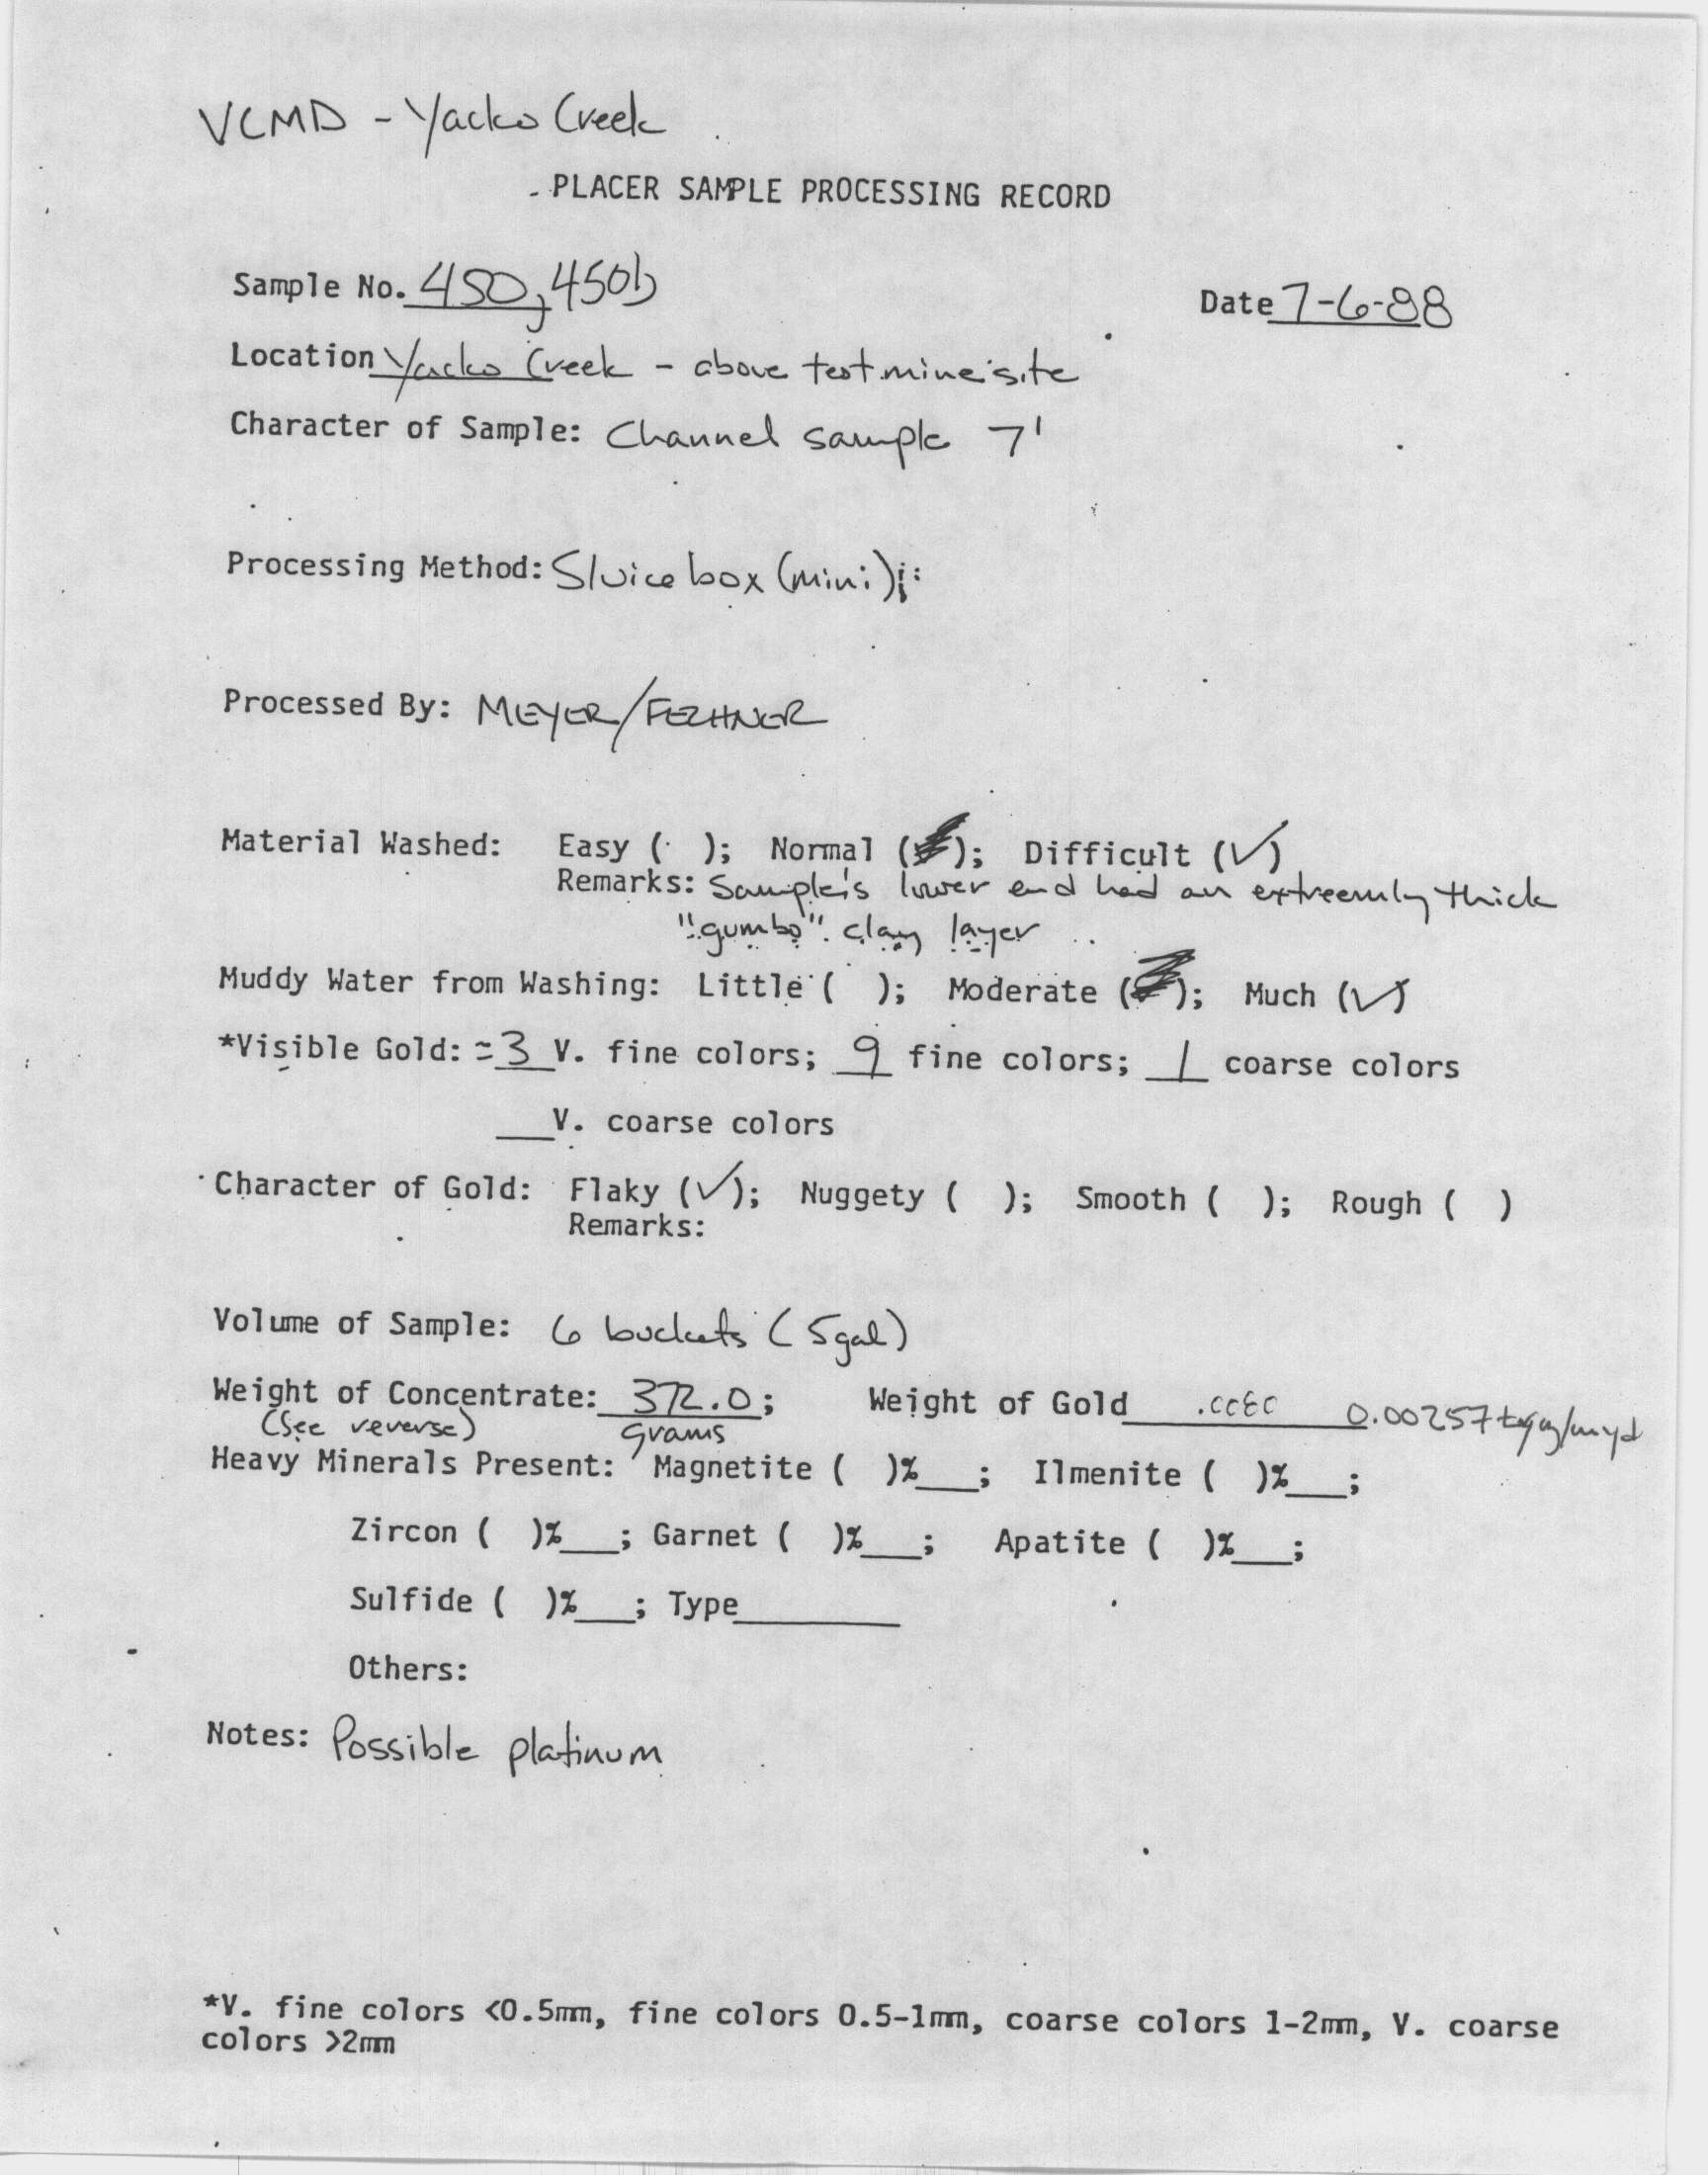 VCMD - Yacko Creek
PLACER SAMPLE PROCESSING RECORD
Sample No. 450, 450b Date 7-6-88
Location Yacko Creek - above test mine site
Character of Sample: Channel sample 7'
Processing Method: Sluice box (mini);
Processed By: MEYER/FECHNER
Material Washed: Easy ( ); Normal ( ); Difficult (✓)
Remarks: Sample's lower end had an extreemly thick
"gumbo" clay layer
Muddy Water from Washing: Little ( ); Moderate ( ); Much (✓)
*Visible Gold: ≈3 V. fine colors; 9 fine colors; 1 coarse colors
___V. coarse colors
Character of Gold: Flaky (✓); Nuggety ( ); Smooth ( ); Rough ( )
Remarks:
Volume of Sample: 6 buckets (5gal)
Weight of Concentrate: 372.0; Weight of Gold 0.00257
(See reverse) grams
Heavy Minerals Present: Magnetite ( )%___; Ilmenite ( )%___;
Zircon ( )%___; Garnet ( )%___; Apatite ( )%___;
Sulfide ( )%___; Type________
Others:
Notes: Possible platinum
*V. fine colors <0.5mm, fine colors 0.5-1mm, coarse colors 1-2mm, V. coarse
colors >2mm